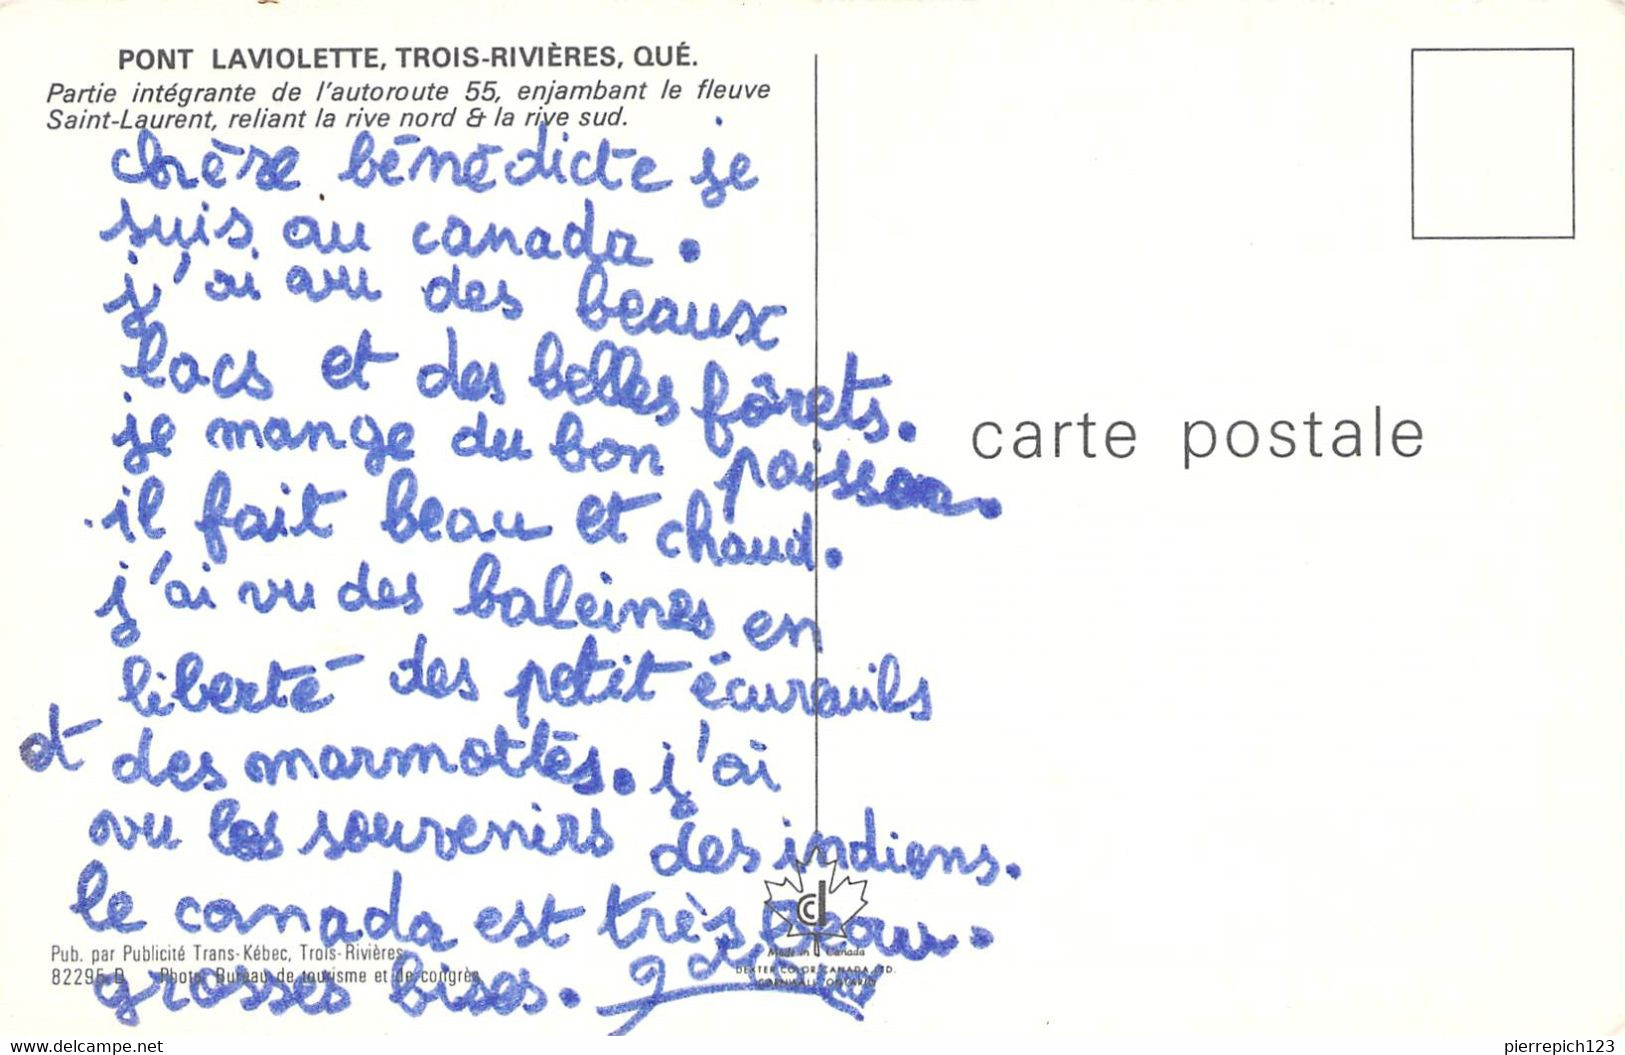 PONT LAVIOLETTE, TROIS-RIVIÈRES, QUÉ.
Partie intégrante de l'autoroute 55, enjambant le fleuve
Saint-Laurent, reliant la rive nord & la rive sud.
chère bénédicte je
suis au canada.
j'ai vu des beaux
lacs et des belles fôrets.
je mange du bon poisson.
il fait beau et chaud.
j'ai vu des baleines en
liberté des petit écurauils
et des marmottes. j'ai
vu les souvenirs des indiens.
le canada est très beau.
grosses bises.
carte postale
Pub. par Publicité Trans-Kébec, Trois-Rivières
82295-D Photo: Bureau de tourisme et de congrès
Made in Canada
DEXTER COLOR CANADA LTD.
CORNWALL, ONTARIO
www.delcampe.net
pierrepich123